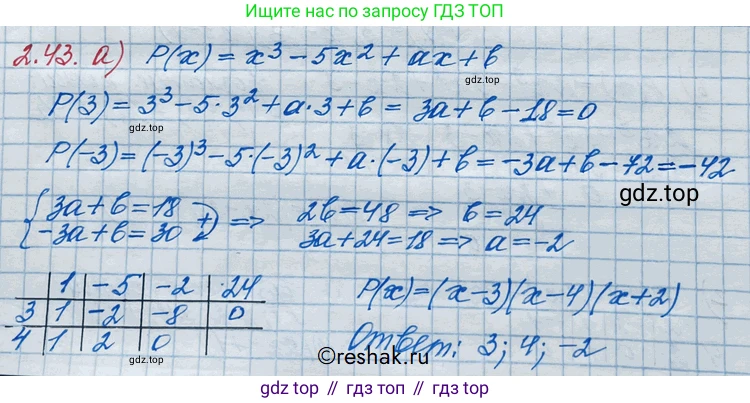 Ищите нас по запросу ГДЗ ТОП
2.43. а) P(x) = x³ - 5x² + ax + b
gdz.top
P(3) = 3³ - 5·3² + a·3 + b = 3a + b - 18 = 0
gdz.top
P(-3) = (-3)³ - 5·(-3)² + a·(-3) + b = -3a + b - 72 = -42
gdz.top
{ 3a + b = 18
-3a + b = 30 +) => 2b = 48 => b = 24
3a + 24 = 18 => a = -2
gdz.top
| 1 | -5 | -2 | 24
3 | 1 | -2 | -8 | 0
4 | 1 | 2 | 0
P(x) = (x-3)(x-4)(x+2)
gdz.top
Ответ: 3; 4; -2
©reshak.ru
gdz.top // гдз топ // gdz.top // гдз топ